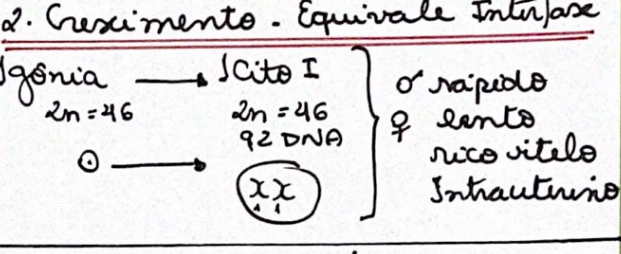 2. Crescimento - Equivale Interfase
gônia → Cito I
2n = 46 2n = 46
92 DNA
xx
♂ rápido
♀ lento
rico vitelo
Intrauterino